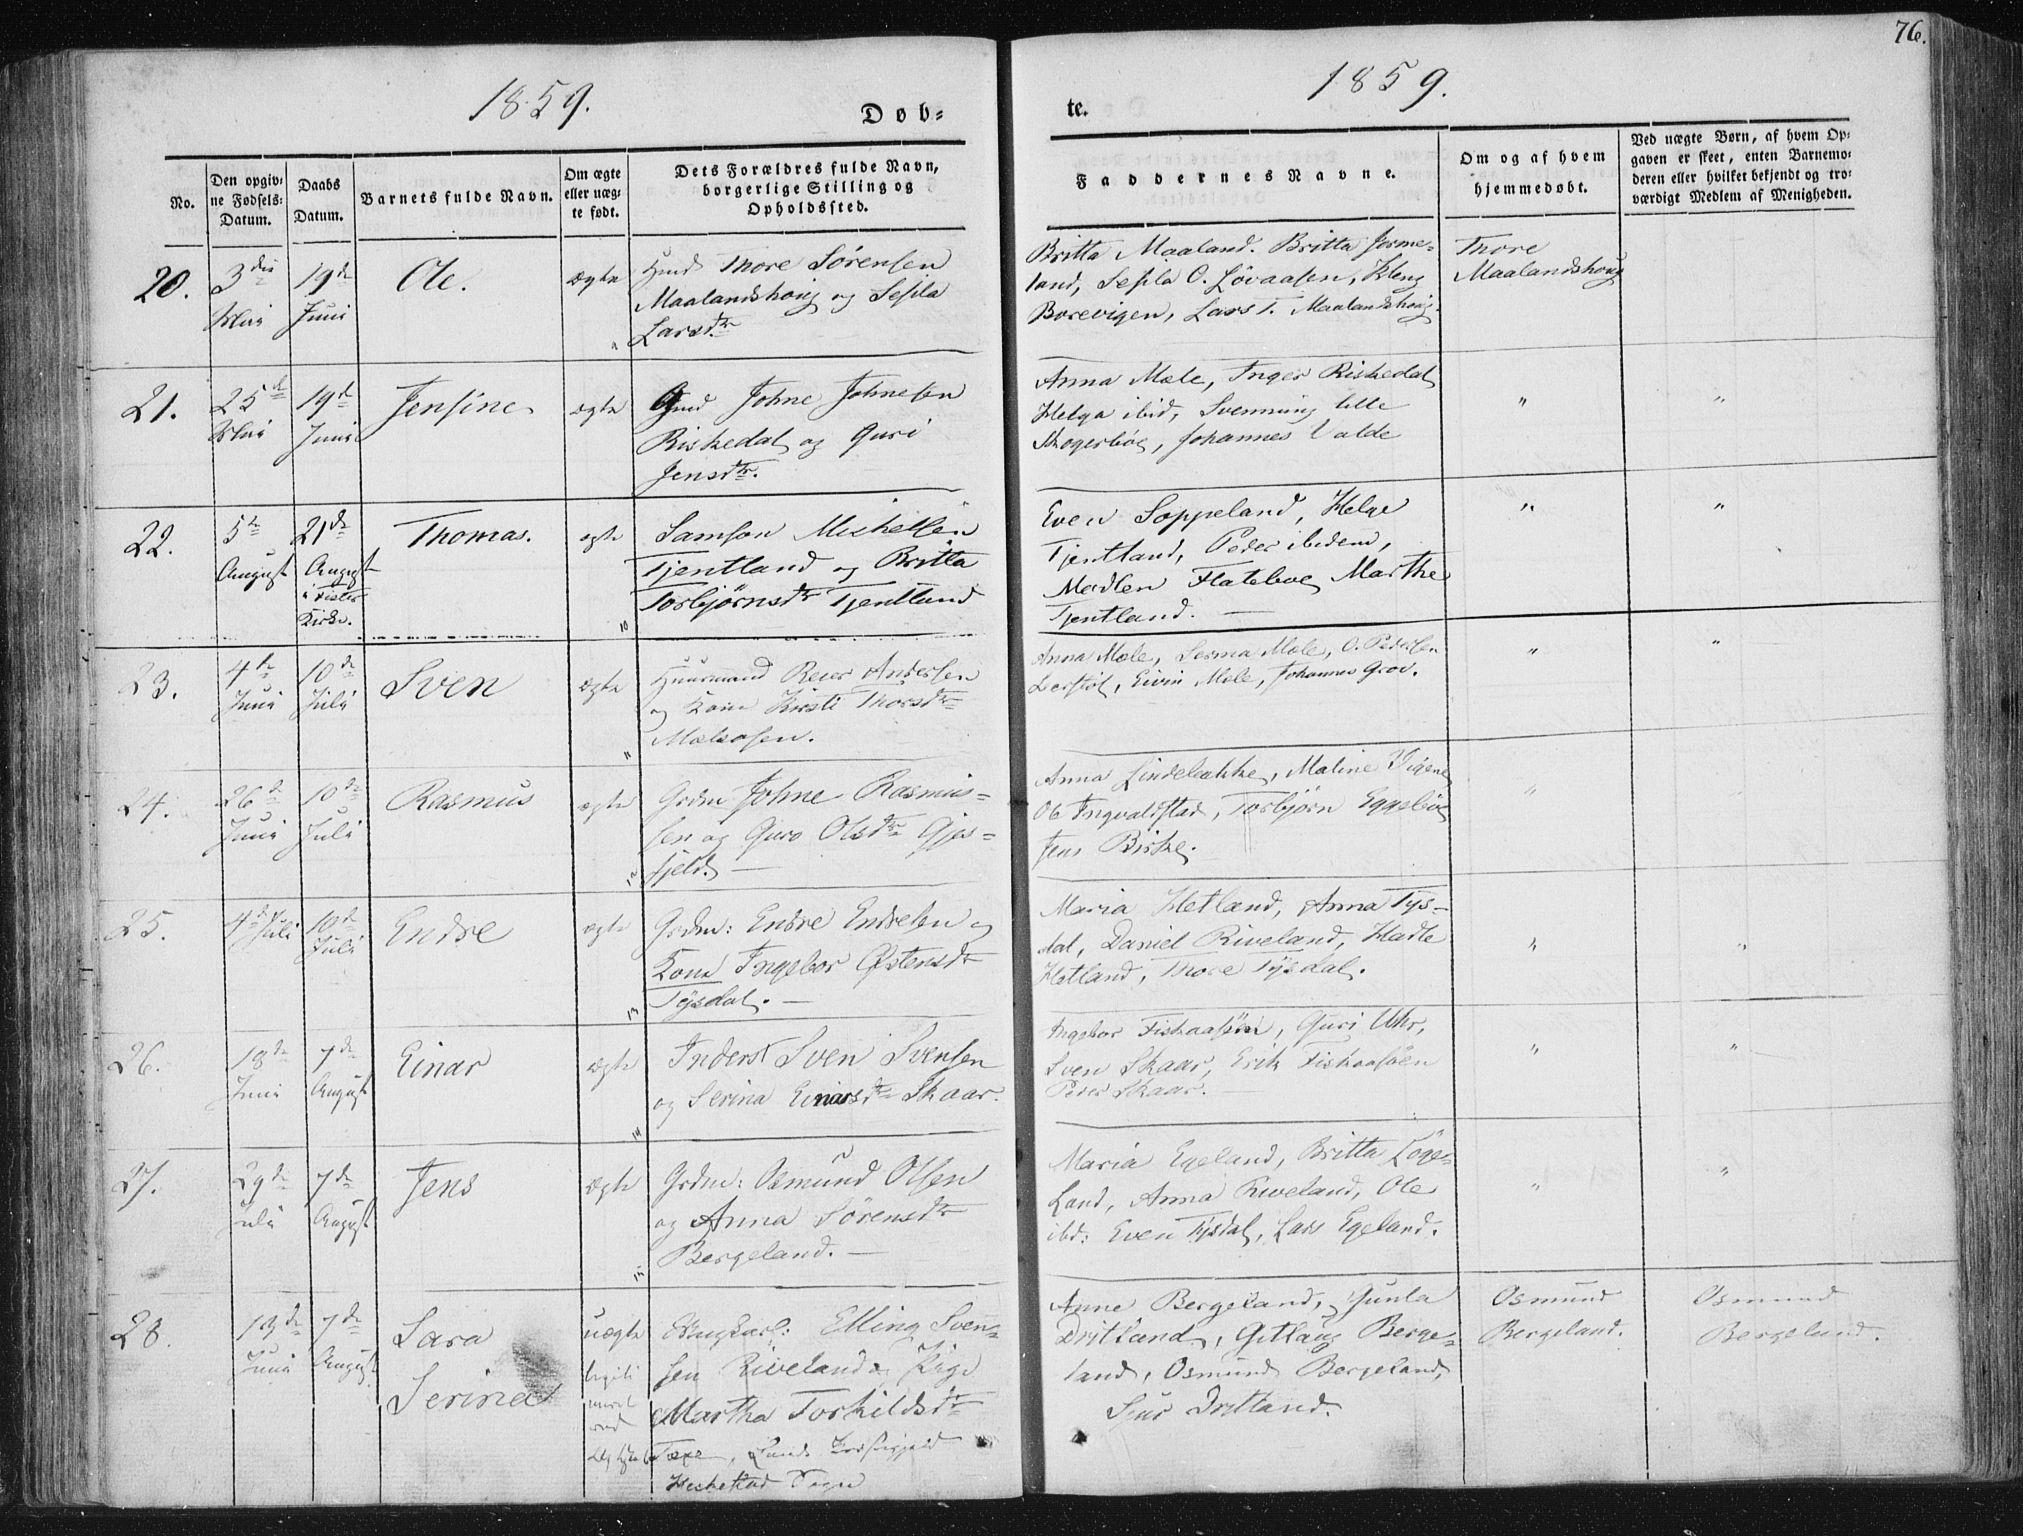 76.
1859.
Døb-
te.
1859.
No.
Den opgiv-
ne Fødsels-
Datum.
Daabs
Datum.
Barnets fulde Navn.
Om ægte
eller uæg-
te født.
Dets Forældres fulde Navn,
borgerlige Stilling og
Opholdssted.
Faddernes Navne.
Om og af hvem
hjemmedøbt.
Ved uægte Børn, af hvem Op-
gaven er skeet, enten Barnemo-
deren eller hvilket bekjendt og tro-
værdigt Medlem af Menigheden.
20.
3die
Mai
19de
Juni
Ole.
ægte
Thore Sørensen
Maalandshoug og Sesila
Larsdtr
Britta Maaland. Britta Jorme-
land, Sesila O. Løvaasen, Kleng
Borevigen, Lars T. Maalandshoug.
Thore
Maalandshoug
21.
25d
Mai
19de
Juni
Jensine
ægte
Gmd Johne Johnesen
Riskedal og Guri
Jensdtr.
Anna Mæle, Inger Riskedal
Helga ibid, Svenning lille
Skogerbøe, Johannes Valde
"
"
22.
5te
August
21de
August
i Fister
Kirke.
Thomas.
ægte
10
Samson Michelsen
Tjentland og Britta
Torbjørnsdtr Tjentland
Even Soppeland, Helge
Tjentland, Peder ibidem,
Madlen Flatebøe Marthe
Tjentland. —
"
"
23.
4de
Juni
10de
Juli
Sven
ægte
11
Huusmand Reier Andersen
og Kone Kirsti Thorsdtr
Mæleaasen.
Anna Mæle, Serina Mæle, O. Pedersen
Eivin Mæle, Johannes Grov.
"
"
24.
26de
Juni
10de
Juli
Rasmus
ægte
12
Grdm Johne Rasmus-
sen og Guro Olsdtr Gjes-
fjeld. —
Anna Lindebække, Maline Vigene
Ole Ingvaldstad, Torbjørn Eggebøe
Jens Birke.
"
25.
4de Juli
10de
Juli
Endre
ægte
13
Grdm: Endre Endresen og
Kone Ingebor Østensdtr
Tysdal. —
Maria Hetland, Anna Tys-
dal, Daniel Riveland, Hadle
Hetland, Thore Tysdal.
"
"
26.
18de
Juni
7de
August
Einar
ægte
14
Inderst Sven Svensen
og Serina Einarsdtr Skaar.
Ingebor Fiskaasøen, Guri Uhr,
Sven Skaar, Erik Fiskaasøen
Peder Skaar. —
"
"
27.
29de
Juli
7de
August
Jens
ægte
15
Grdm: Osmund Olsen
og Anna Sørensdtr
Bergeland. —
Maria Egeland, Britta Løge-
Land, Anna Riveland, Ole
ibd: Even Tysdal, Lars Egeland.
"
"
28.
13de
Juni
7de
August
Sara
Serine
uægte
Ungkarl: Elling Sven-
sen Riveland og Pige
Martha Torkildsdtr
Lunds Præstegjeld
Heskestad Sogn
Anne Bergeland, Gunla
Dritland, Gitlaug Berge-
land, Osmund Bergeland,
Sjur Dritland.
Osmund
Bergeland.
Osmund
Bergeland.